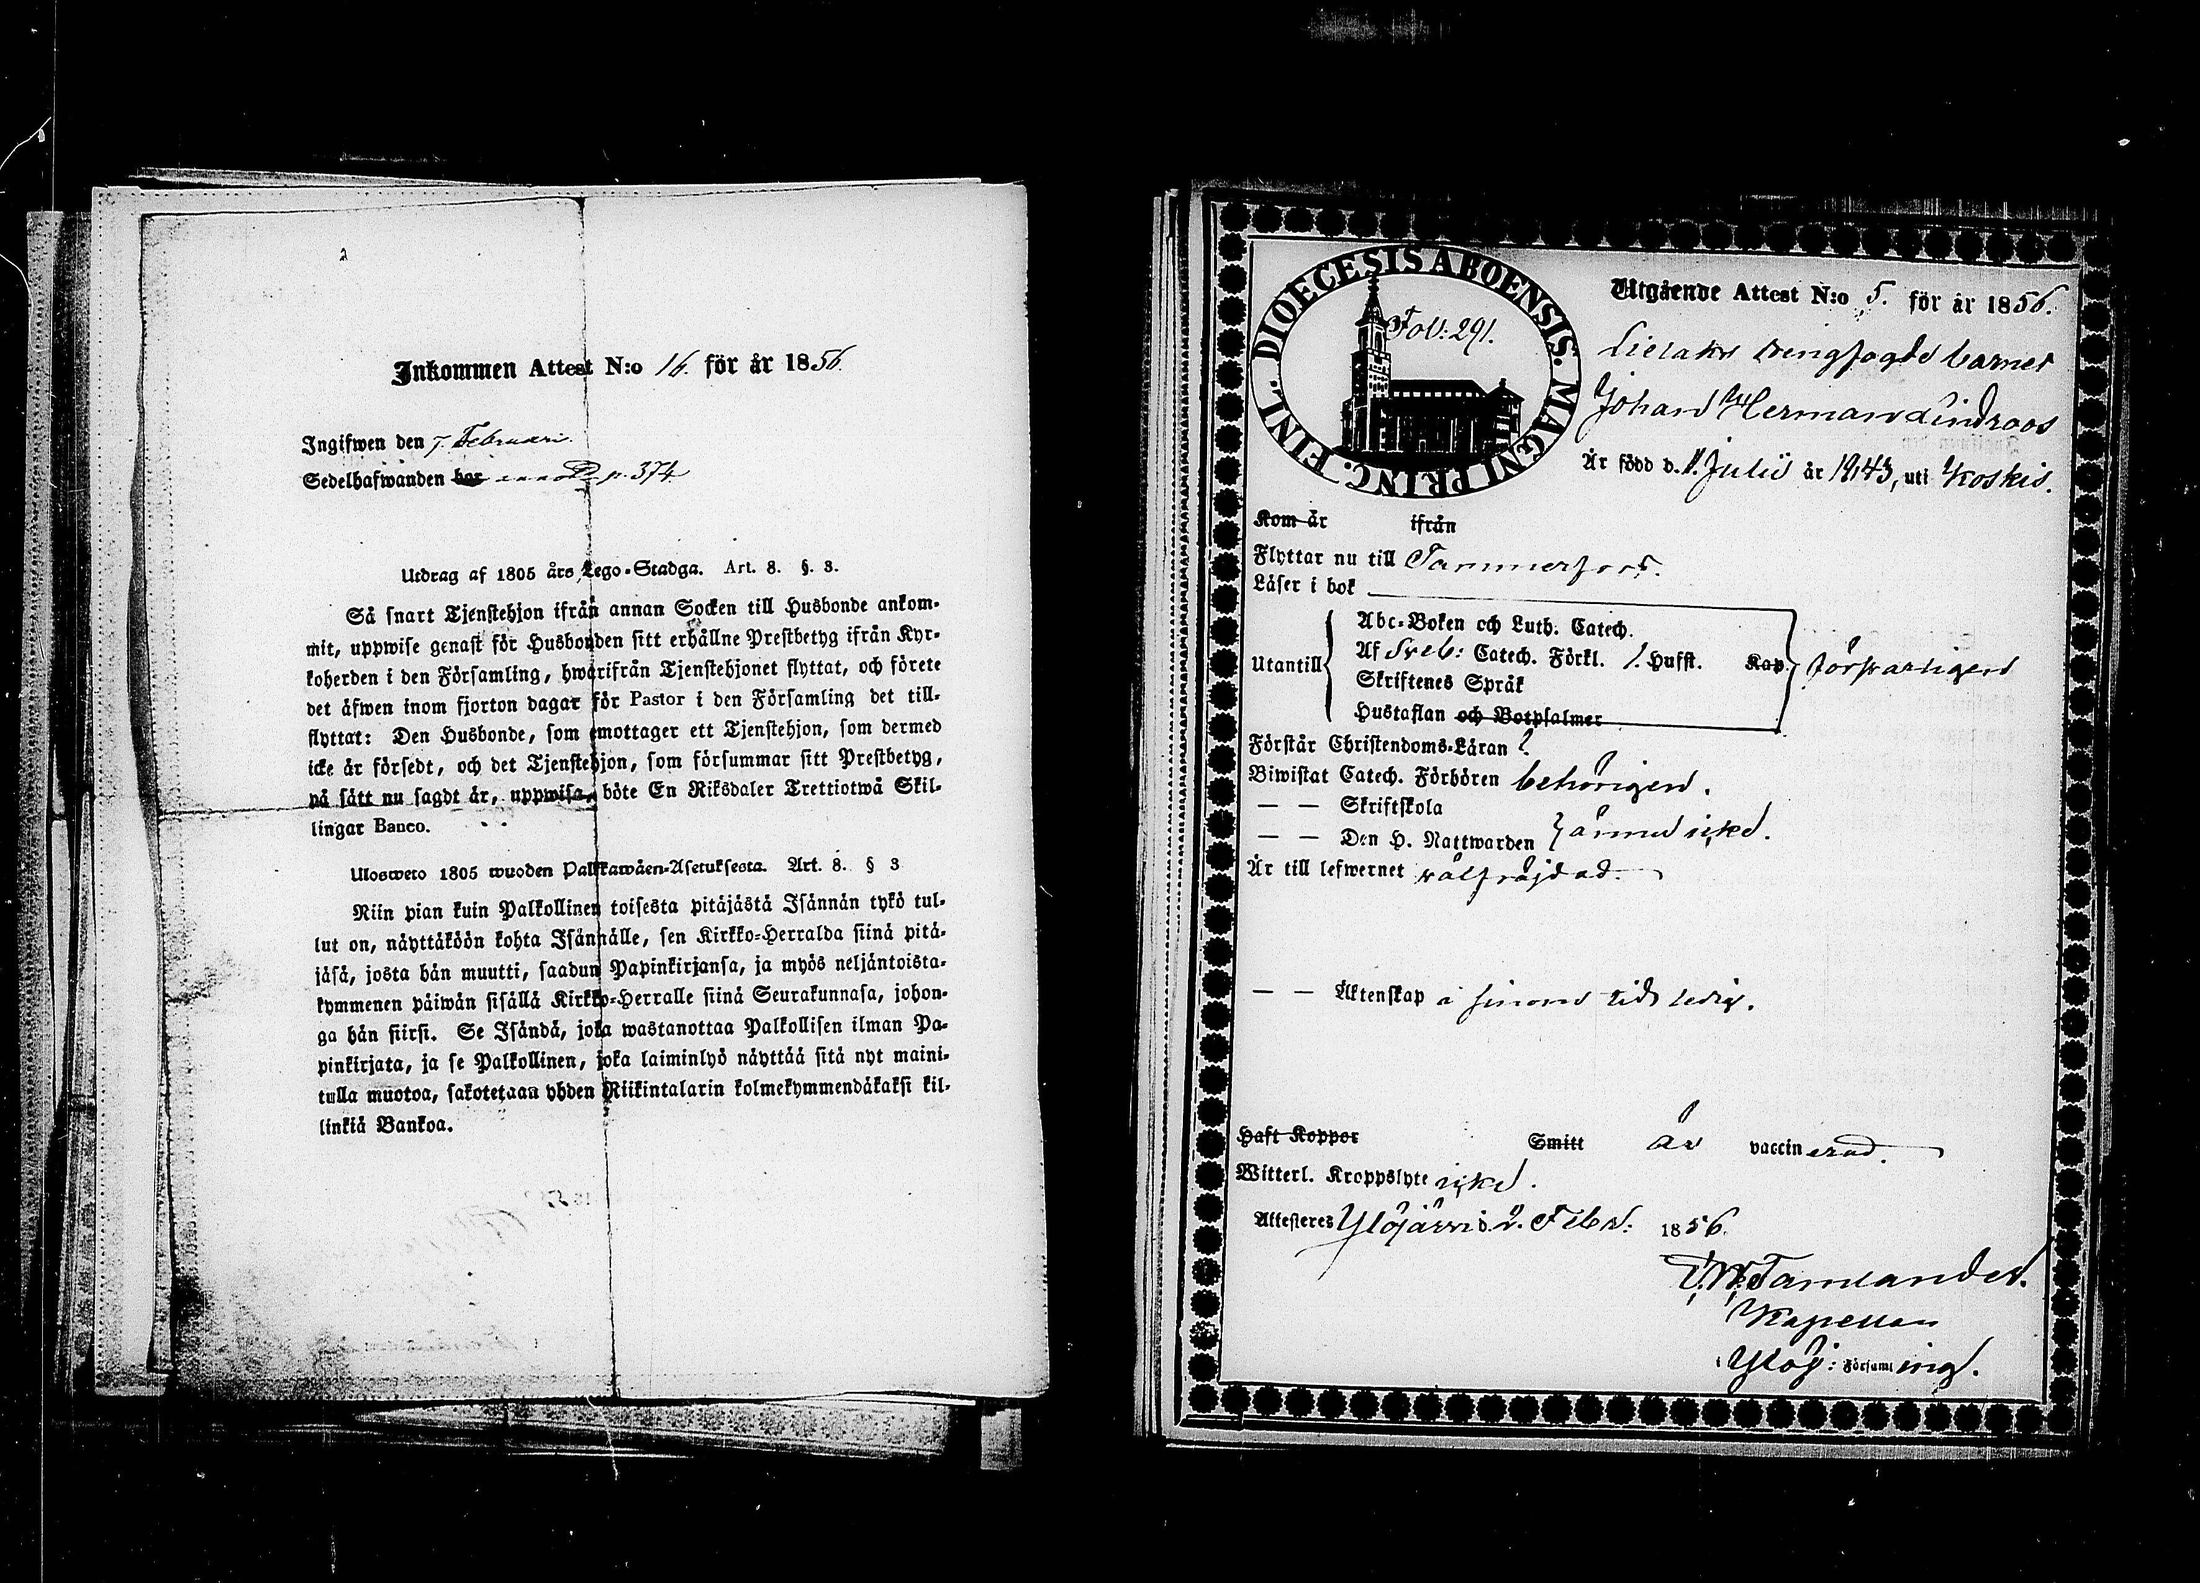 Inkommen Attest N:o 16. för år 1856.
Ingifwen den 7 Februari.
Sedelhafwanden har p. 374
Utdrag af 1805 års Lego-Stadga. Art. 8. §. 3.
Så snart Tjenstehjon ifrån annan Socken till Husbonde ankom-
mit, uppwise genast för Husbonden sitt erhållne Prestbetyg ifrån Kyr-
koherden i den Församling, hwarifrån Tjenstehjonet flyttat, och förete
det äfwen inom fjorton dagar för Pastor i den Församling det till-
flyttat: Den Husbonde, som emottager ett Tjenstehjon, som dermed
icke är försedt, och det Tjenstehjon, som försummar sitt Prestbetyg,
på sätt nu sagdt är, uppwisa, böte En Riksdaler Trettiotwå Skil-
lingar Banco.
Ulosweto 1805 wuoden Palkkawäen-Asetuksesta. Art. 8. § 3
Niin pian kuin Palkollinen toisesta pitäjästä Isännän tykö tul-
lut on, näyttäköön kohta Isännälle, sen Kirkko-Herralda siinä pitä-
jäsä, josta hän muutti, saadun Papinkirjansa, ja myös neljäntoista-
kymmenen päiwän sisällä Kirkko-Herralle siinä Seurakunnasa, johon-
ga hän siirsi. Se Isändä, joka wastanottaa Palkollisen ilman Pa-
pinkirjata, ja se Palkollinen, joka laiminlyö näyttää sitä nyt maini-
tulla muotoa, sakotetaan yhden Riikintalarin kolmekymmendäkaksi kil-
linkiä Bankoa.
DIOECESIS ABOENSIS. MAGNI PRINC. FINL.
Fol: 291.
Utgående Attest N:o 5. för år 1856.
Lielaks drengfogde barnet
Johan Herman Lindroos
Är född d. 1. Julii år 1843, uti Koskis.
Kom år ifrån
Flyttar nu till Tammerfors.
Läser i bok
Abc-Boken och Luth. Catech.
Utantill Af Sveb: Catech. Förkl. 1. Hufst. Kap. försvarligen
Skriftenes Språk
Hustaflan och Botpsalmer
Förstår Christendoms-Läran
Biwistat Catech. Förhören behörigen.
— — Skriftskola
— — Den H. Nattwarden } ännu icke.
Är till lefwernet välfräjdad.
— — Äktenskap å sinom tid ledig.
Haft Koppor Smitt är vaccinerad.
Witterl. Kroppslyte icke.
Attesteres Ylöjärvi d. 2. Febr. 1856.
Tamlander.
Kapellan
i Ylöj: Församling.